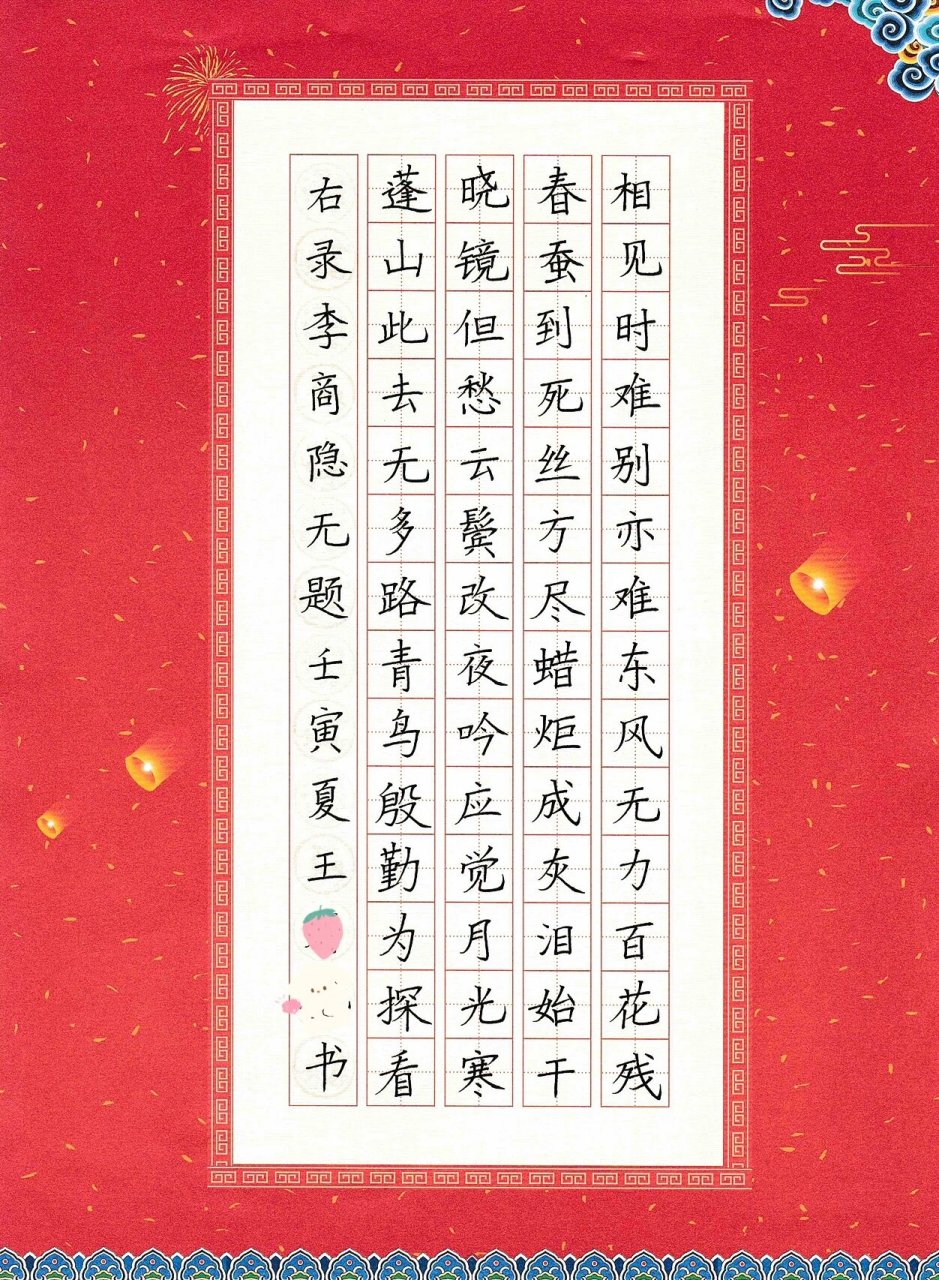 相见时难别亦难东风无力百花残
春蚕到死丝方尽蜡炬成灰泪始干
晓镜但愁云鬓改夜吟应觉月光寒
蓬山此去无多路青鸟殷勤为探看
右录李商隐无题壬寅夏王书